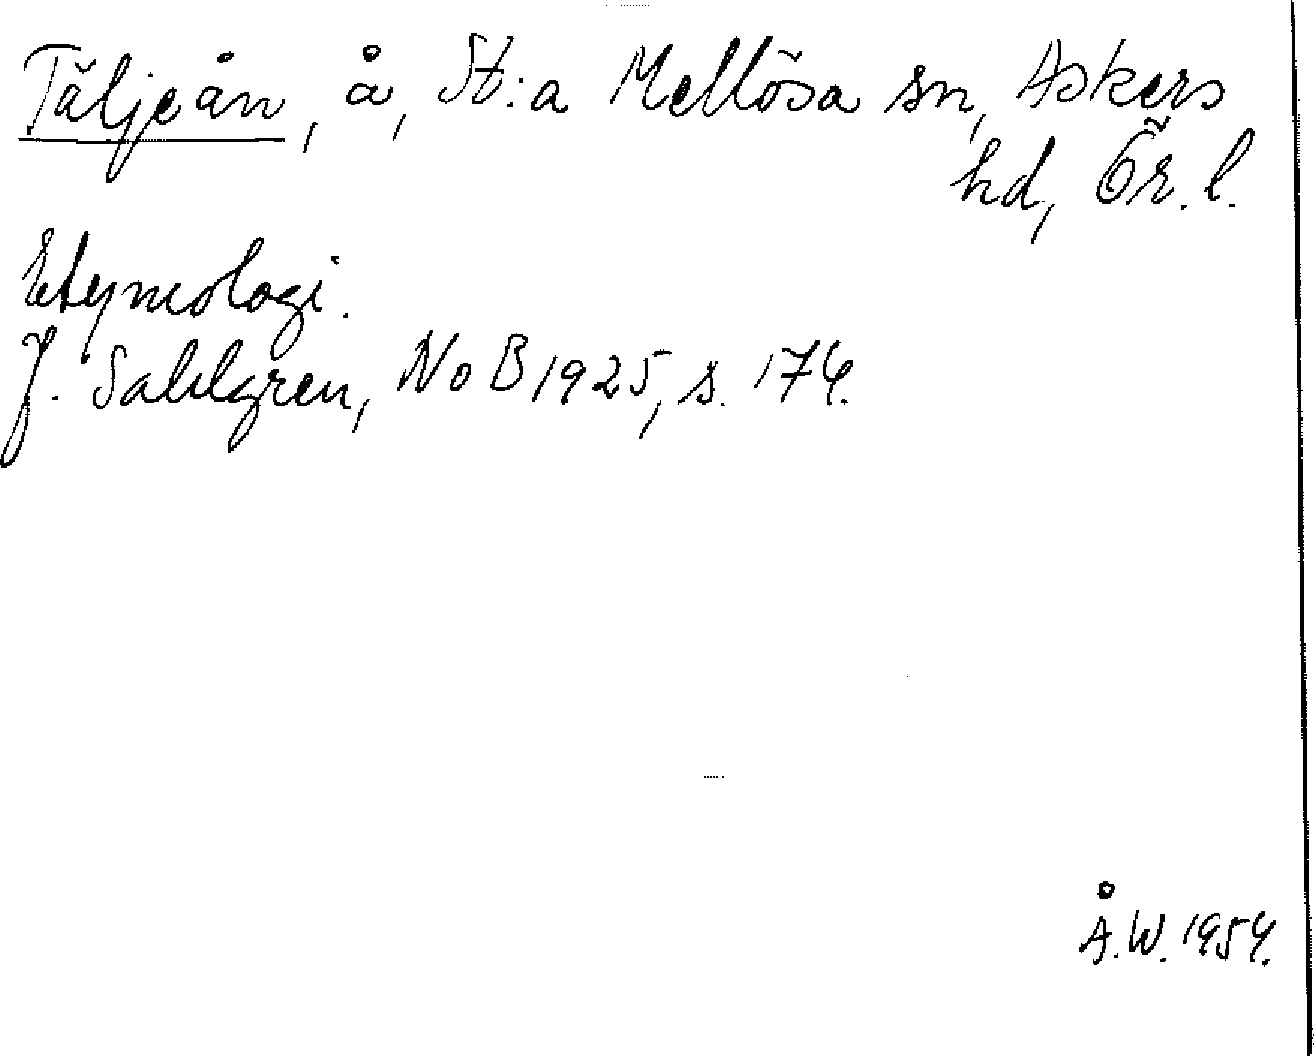 Täljeån, å, St:a Mellösa sn, Askers
hd, Ör. l.
Etymologi.
J. Sahlgren, NoB 1925, s. 174.
Å.W. 1954.